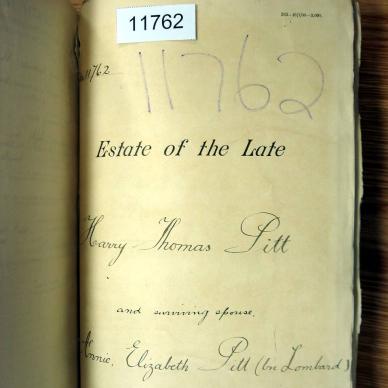 11762
11762
11762
Estate of the Late
Harry Thomas Pitt
and surviving spouse.
Annie Elizabeth Pitt (bn Lombard)